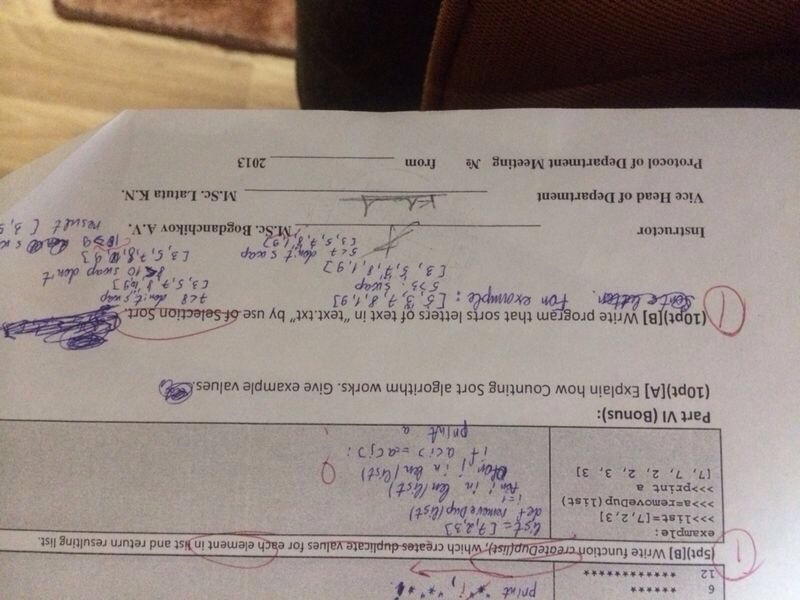 6 ******
12 ************
print "*"i, "*"*i
(5pt)[B] Write function createDup(list), which creates duplicate values for each element in list and return resulting list.
1
example:
>>>list=[7,2,3]
>>>a=removeDup(list)
>>>print a
[7, 7, 2, 2, 3, 3]
list = [7,2,3]
def removeDup(list)
i=1
for i in len(list)
for j in len(list)
if a(i)=a(j):
print a
0
Part VI (Bonus):
(10pt)[A] Explain how Counting Sort algorithm works. Give example values.
(10pt)[B] Write program that sorts letters of text in "text.txt" by use of Selection Sort.
1
For example: [5, 3, 7, 8, 1, 9]
5>3: swap
[3, 5, 7, 8, 1, 9]
5<7 don't swap
[3, 5, 7, 8, 1, 9]
7<8 don't swap
[3, 5, 7, 8, 9]
8 10 swap don't
[3, 5, 7, 8, 9]
result [3, 5
Instructor M.Sc. Bogdanchikov A.V.
Vice Head of Department M.Sc. Latuta K.N.
Protocol of Department Meeting № from 2013